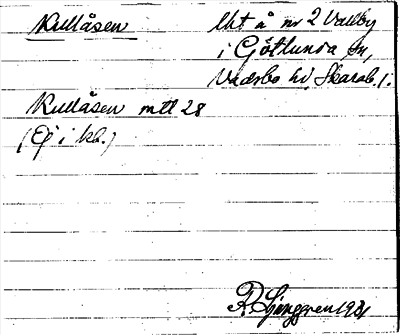 Kullåsen lht å nr 2 Valby
i Götlunda sn,
Vadsbo hd, Skarab. l.
Kullåsen mtl 28
(Ej i kb.)
R. Ljunggren 1931